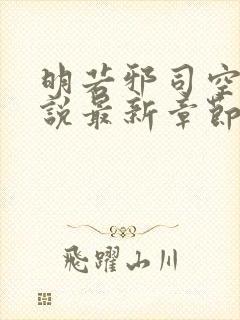 明若邪司空
說最新章節
飛躍山川